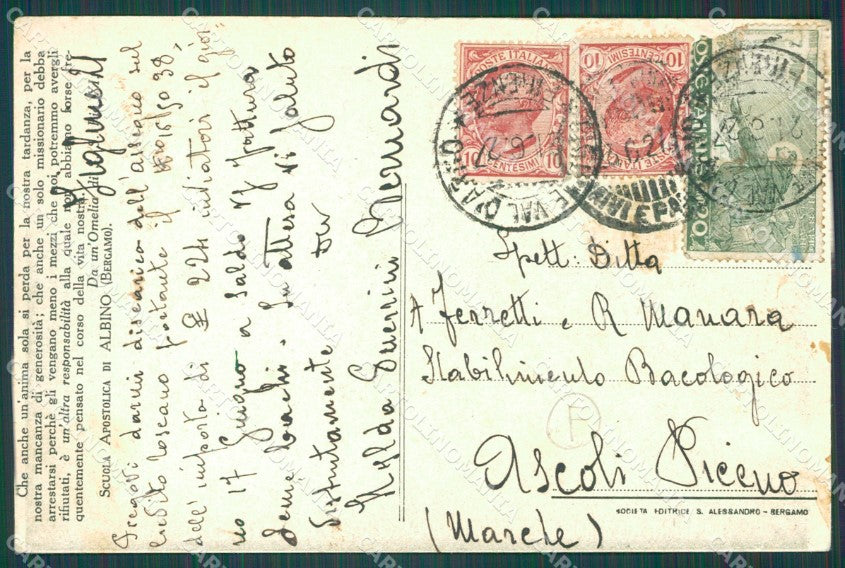 Che anche un'anima sola si perda per la nostra tardanza, per la
nostra mancanza di generosità; che anche un solo missionario debba
arrestarsi perchè gli vengano meno i mezzi che noi potremmo avergli
rifiutati, è un'altra responsabilità alla quale non abbiamo forse fre-
quentemente pensato nel corso della vita nostra.
Da un'Omelia di
SCUOLA APOSTOLICA DI ALBINO (BERGAMO).
Pregovi darmi discarico dell'assegno sul
Credito Toscano portante il
dell'importo di 224 inviatovi il gior
no 17 Giugno a saldo Vs fattura
seme bachi. In attesa Vi saluto
distintamente
Guerrini Bernardi
POSTE ITALIANE
10 CENTESIMI 10
POSTE ITALIANE
10 CENTESIMI 10
FIRENZE
Spett: Ditta
Ferretti e R Manara
Stabilimento Bacologico
Ascoli Piceno
(Marche)
SOCIETÀ EDITRICE S. ALESSANDRO - BERGAMO
CARTOLINOMANIA